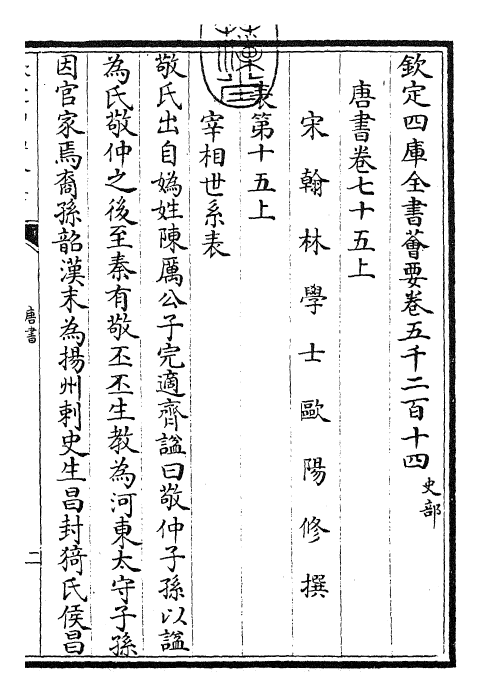 欽定四庫全書薈要卷五千二百十四 史部
唐書卷七十五上
宋翰林學士歐陽修撰
表第十五上
宰相世系表
敬氏出自媯姓陳厲公子完適齊諡曰敬仲子孫以諡
為氏敬仲之後至秦有敬丕丕生教為河東太守子孫
因官家焉裔孫韶漢末為揚州刺史生昌封猗氏侯昌
唐書
二